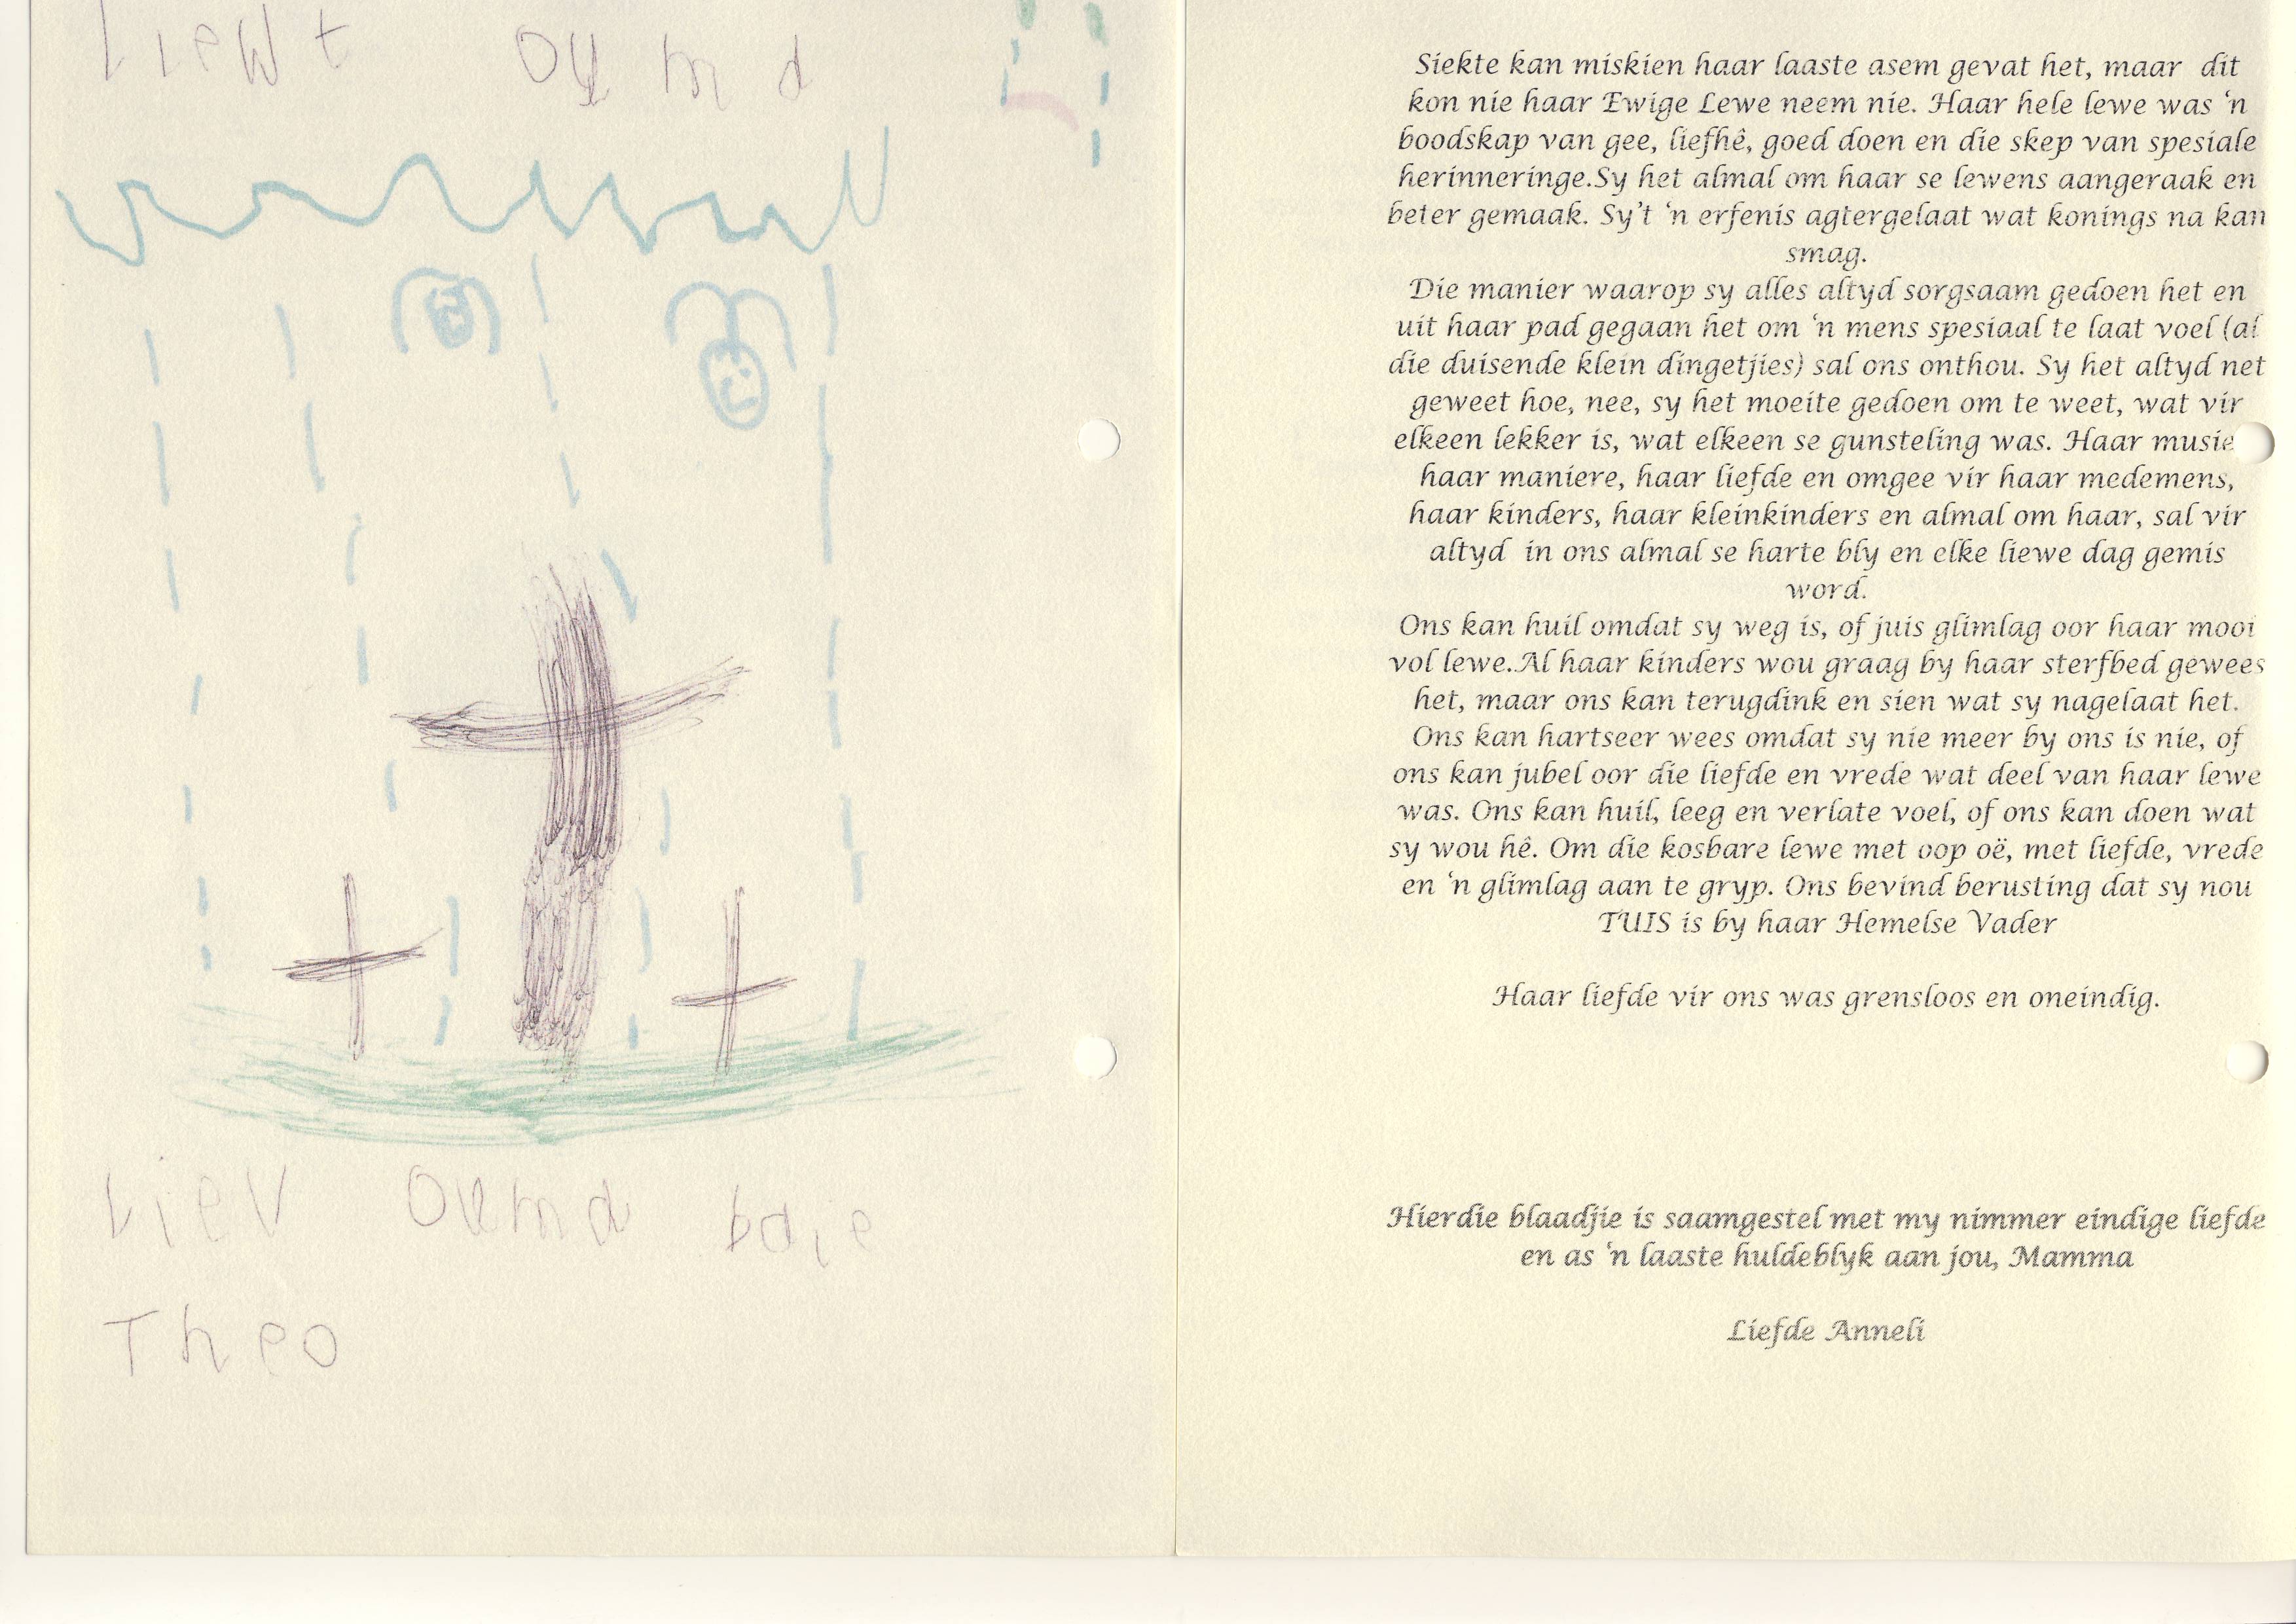 Liewt Ouma
Liev Ouma baie
Theo
Siekte kan miskien haar laaste asem gevat het, maar dit
kon nie haar Ewige Lewe neem nie. Haar hele lewe was ‘n
boodskap van gee, liefhê, goed doen en die skep van spesiale
herinneringe.Sy het almal om haar se lewens aangeraak en
beter gemaak. Sy’t ‘n erfenis agtergelaat wat konings na kan
smag.
Die manier waarop sy alles altyd sorgsaam gedoen het en
uit haar pad gegaan het om ‘n mens spesiaal te laat voel (al
die duisende klein dingetjies) sal ons onthou. Sy het altyd net
geweet hoe, nee, sy het moeite gedoen om te weet, wat vir
elkeen lekker is, wat elkeen se gunsteling was. Haar musie
haar maniere, haar liefde en omgee vir haar medemens,
haar kinders, haar kleinkinders en almal om haar, sal vir
altyd in ons almal se harte bly en elke liewe dag gemis
word.
Ons kan huil omdat sy weg is, of juis glimlag oor haar mooi
vol lewe.Al haar kinders wou graag by haar sterfbed gewees
het, maar ons kan terugdink en sien wat sy nagelaat het.
Ons kan hartseer wees omdat sy nie meer by ons is nie, of
ons kan jubel oor die liefde en vrede wat deel van haar lewe
was. Ons kan huil, leeg en verlate voel, of ons kan doen wat
sy wou hê. Om die kosbare lewe met oop oë, met liefde, vrede
en ‘n glimlag aan te gryp. Ons bevind berusting dat sy nou
TUIS is by haar Hemelse Vader
Haar liefde vir ons was grensloos en oneindig.
Hierdie blaadjie is saamgestel met my nimmer eindige liefde
en as ‘n laaste huldeblyk aan jou, Mamma
Liefde Anneli